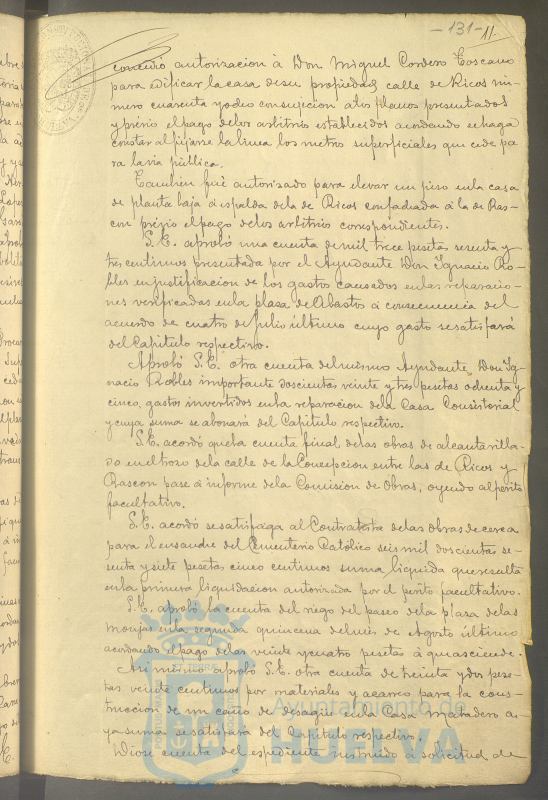 -131-
11.
concedió autorización á Don Miguel Cordero Toscano
para edificar la casa de su propiedad, calle de Ricos nú-
mero cuarenta y ocho con sujecion a los planos presentados
y prévio el pago de los arbitrios establecidos acordando se haga
constar al fijarse la línea los metros superficiales que cede pa-
ra la vía pública.
Tambien fué autorizado para elevar un piso en la casa
de planta baja á espalda de la de Ricos con fachada á la de Ras-
con prévio el pago de los arbitrios correspondientes.
S.E. aprobó una cuenta de mil trece pesetas sesenta y
tres centimos presentada por el Ayudante Don Ignacio Ro-
bles en justificacion de los gastos causados en las reparacio-
nes verificadas en la plaza de Abastos á consecuencia del
acuerdo de cuatro de Julio último cuyo gasto se satisfará
del Capitulo respectivo.
Aprobó S.E. otra cuenta del mismo Ayudante, Don Ig-
nacio Robles importante doscientas veinte y tres pesetas ochenta y
cinco, gastos invertidos en la reparacion de la Casa Consistorial
y cuya suma se abonará del Capitulo respectivo.
S.E. acordó que la cuenta final de las obras de alcantarilla-
do en el trozo de la calle de la Concepcion entre las de Ricos y
Rascon pase á informe de la Comision de Obras, oyendo al perito
facultativo.
S.E. acordó se satisfaga al Contratista de las Obras de cerca
para el ensanche del Cementerio Católico seis mil doscientas se-
senta y siete pesetas cinco centimos suma líquida que resulta
en la primera liquidacion autorizada por el perito facultativo.
S.E. aprobó la cuenta del riego del paseo de la plaza de las
monjas en la segunda quincena del mes de Agosto último
acordando el pago de las veinte y cuatro pesetas á que asciende.
Asi mismo aprobó S.E. otra cuenta de treinta y dos pese-
tas veinte centimos por materiales y acarreo para la cons-
truccion de un caño de desagüe en la Casa matadero cu-
ya suma se satisfará del Capitulo respectivo.
Diose cuenta del espediente instruido á solicitud de
Ayuntamiento de
HUELVA